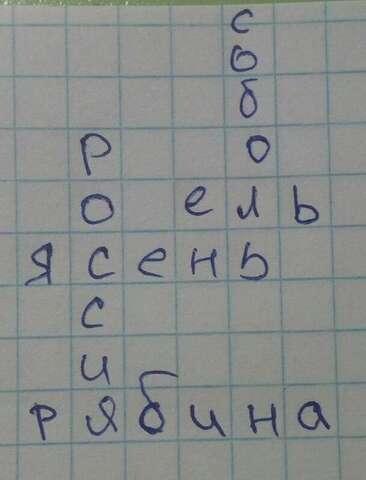 соболь
Россия
ель
ясень
рябина